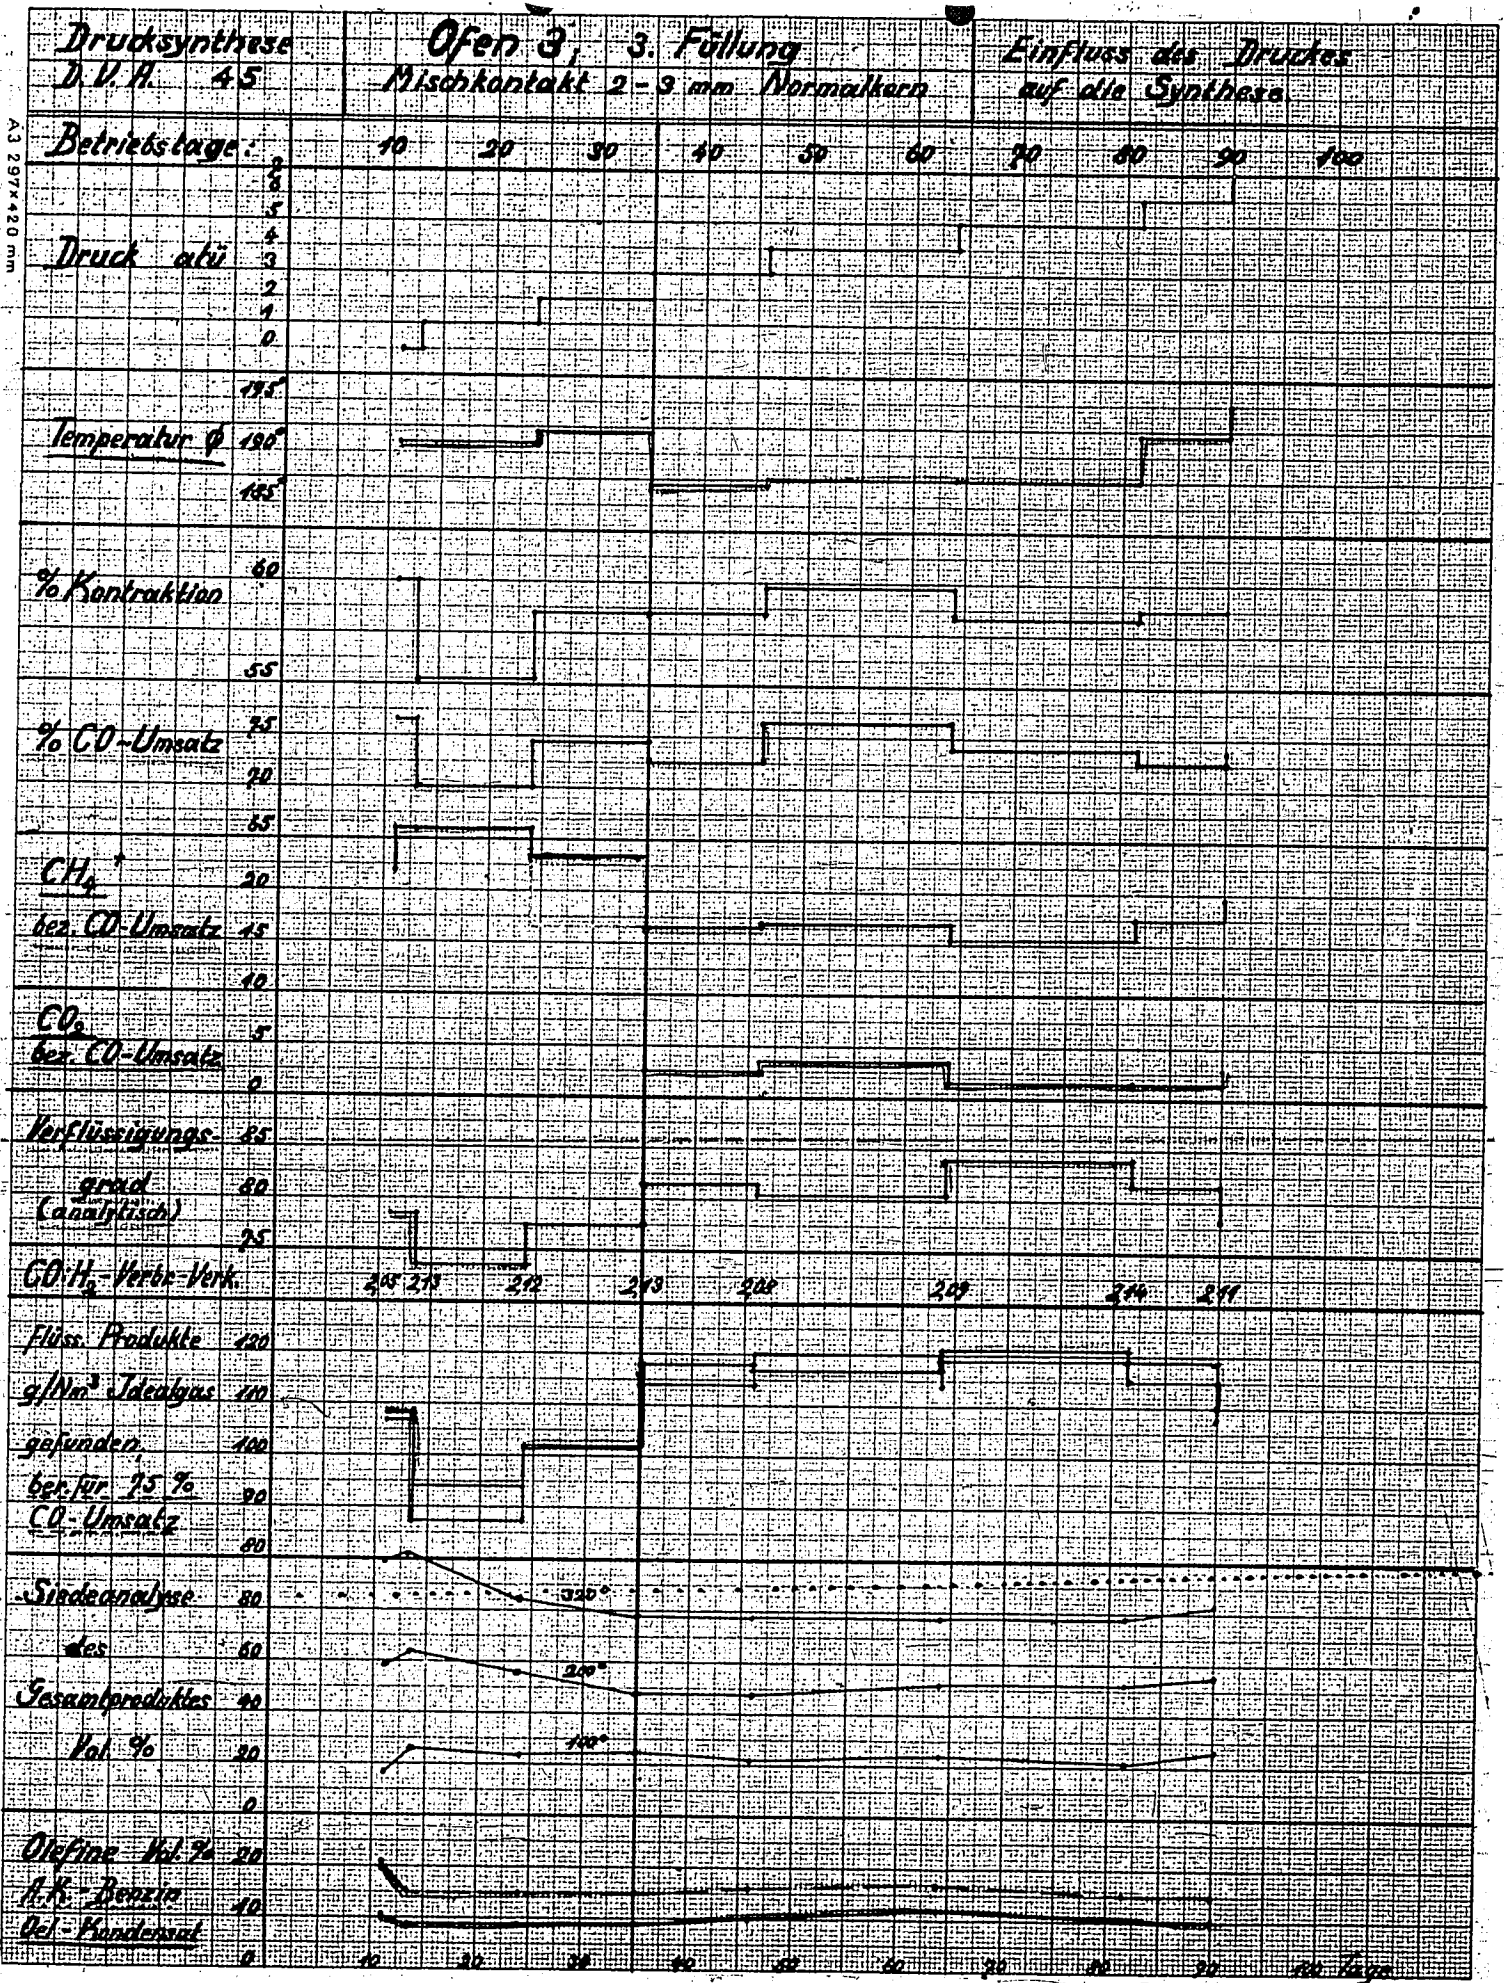 Drucksynthese
D. V. A. 45
Ofen 3, 3. Füllung
Mischkontakt 2-3 mm Normalkorn
Einfluss des Druckes
auf die Synthese.
A3 297×420 mm
Betriebstage: 10 20 30 40 50 60 70 80 90 100
6
5
4
Druck atü 3
2
1
0
195°
Temperatur ϕ 190°
185°
60
% Kontraktion
55
75
% CO-Umsatz
70
65
CH₄ +
20
bez. CO-Umsatz 15
10
CO₂
5
bez. CO-Umsatz
0
Verflüssigungs- 85
grad 80
(analytisch)
75
CO:H₂-Verbr.-Verh. 2,05 2,13 2,12 2,13 2,08 2,09 2,14 2,11
Flüss. Produkte 120
g/Nm³ Idealgas 110
gefunden, 100
ber. für 75 % 90
CO-Umsatz
80
Siedeanalyse 80 320°
des 60 200°
Gesamtproduktes 40
Vol. % 20 100°
0
Olefine Vol. % 20
A.K.-Benzin
10
Oel-Kondensat
0
10 20 30 40 50 60 70 80 90 100 Tage